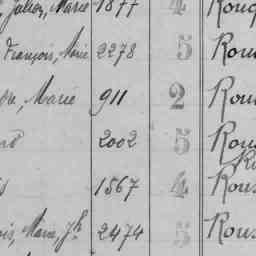 Julien, Marie 1877 4 Rouq
François, Marie 2278 5 Rou
Marie 911 2 Rou
2002 5 Rou
1567 4 Rous
Marie, Jh 2474 5 Rous